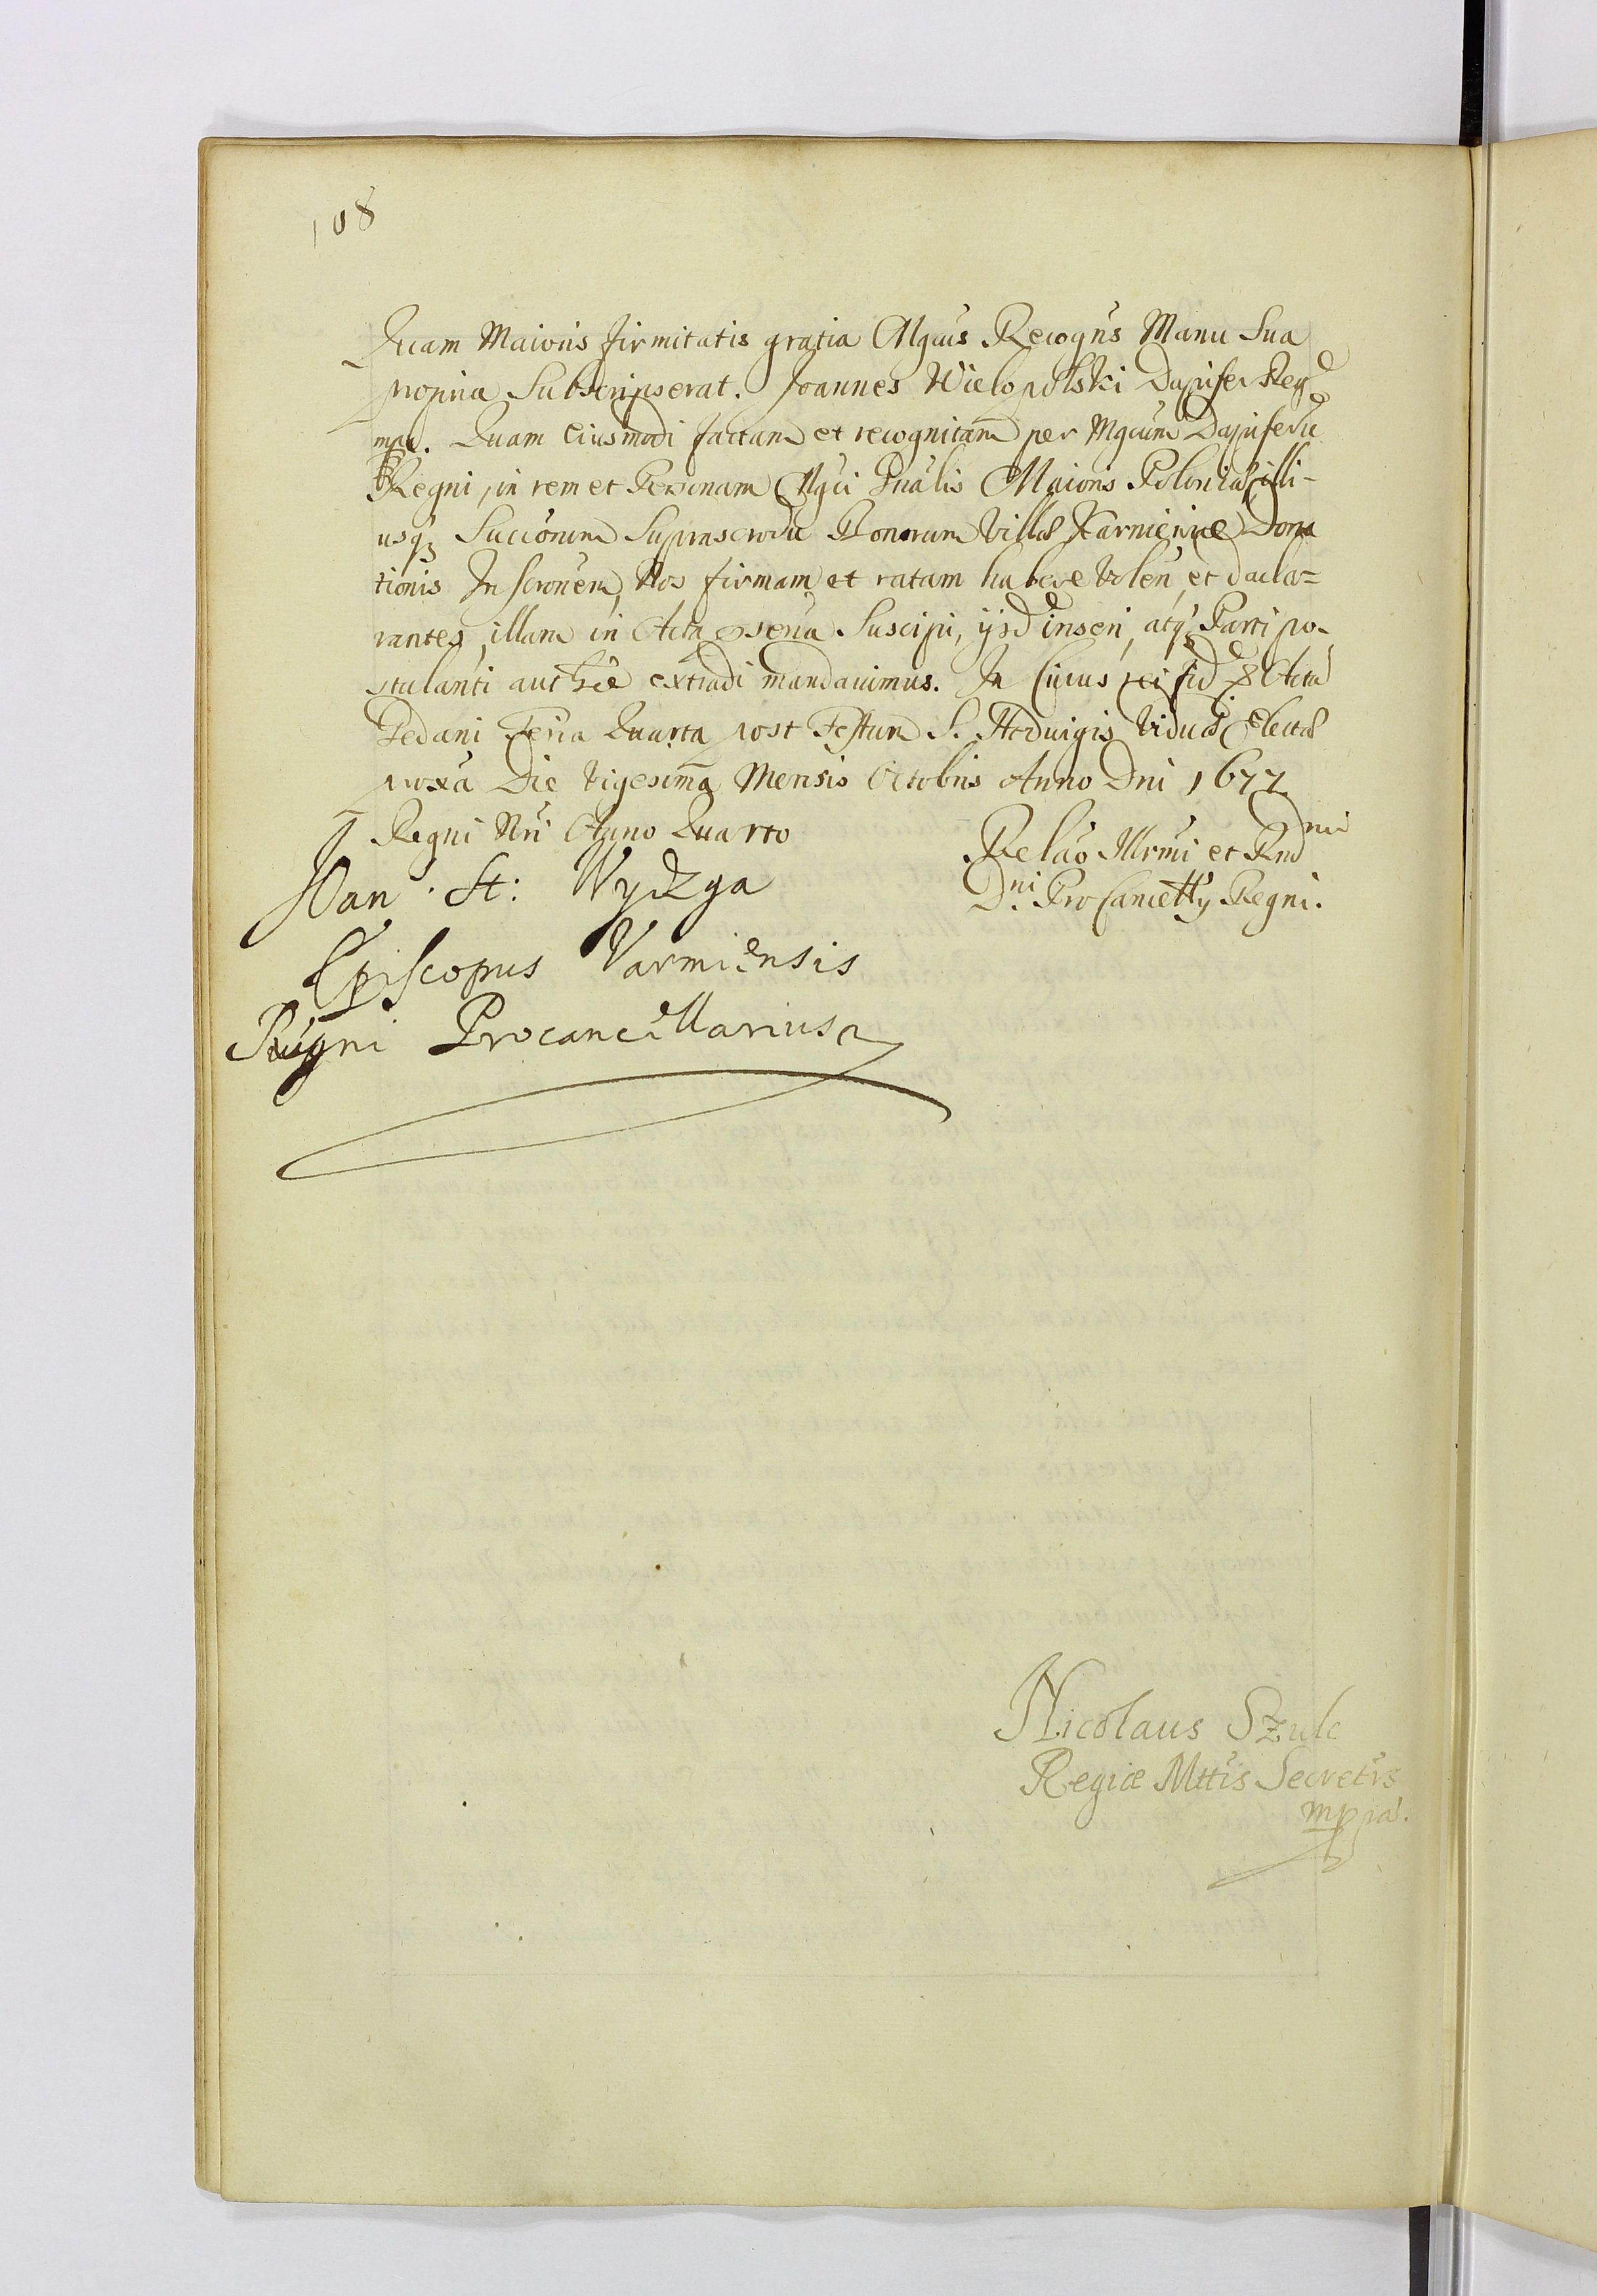 108
Quam Maioris firmitatis gratia Mgcus Recogns Manu Sua
propria Subscripserat. Joannes Wielopolski Dapifer Regni
mpa. Quam Eiusmodi factam et recognitam per Mgcum Dapiferu
Regni, in rem et Personam Mgci Gnalis Maioris Poloniæ, illi-
usq Succorum Suprascrotu Bonorum Villæ Karmienice Dona
tionis Inscronem, Nos firmam et ratam habere Volen, et decla=
rantes, illam in Acta prsentia Suscipi, ijsd inseri, atq Parti po-
stulanti authce extradi mandavimus. In Cuius rei fid Acta
Gedani Feria Quarta post Festum S. Hedvigis Viduæ Electæ
proxa Die Vigesima Mensis Octobris Anno Dni 1677
Regni Nri Anno Quarto
Relao Illrmi et Rndmi
Dni. ProCancelly Regni.
Joan. St: Wydzga
Episcopus Varmiensis
Regni Procancellarius
Nicolaus Szulc
Regiæ Mttis Secretrs
mppa.